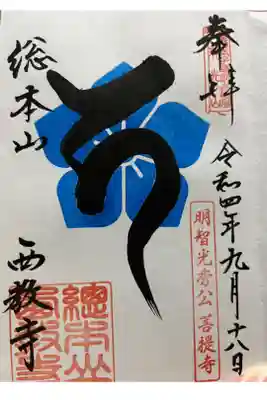 奉拝
令和四年九月十八日
明智光秀公 菩提寺
総本山
西教寺
總本山
西教寺